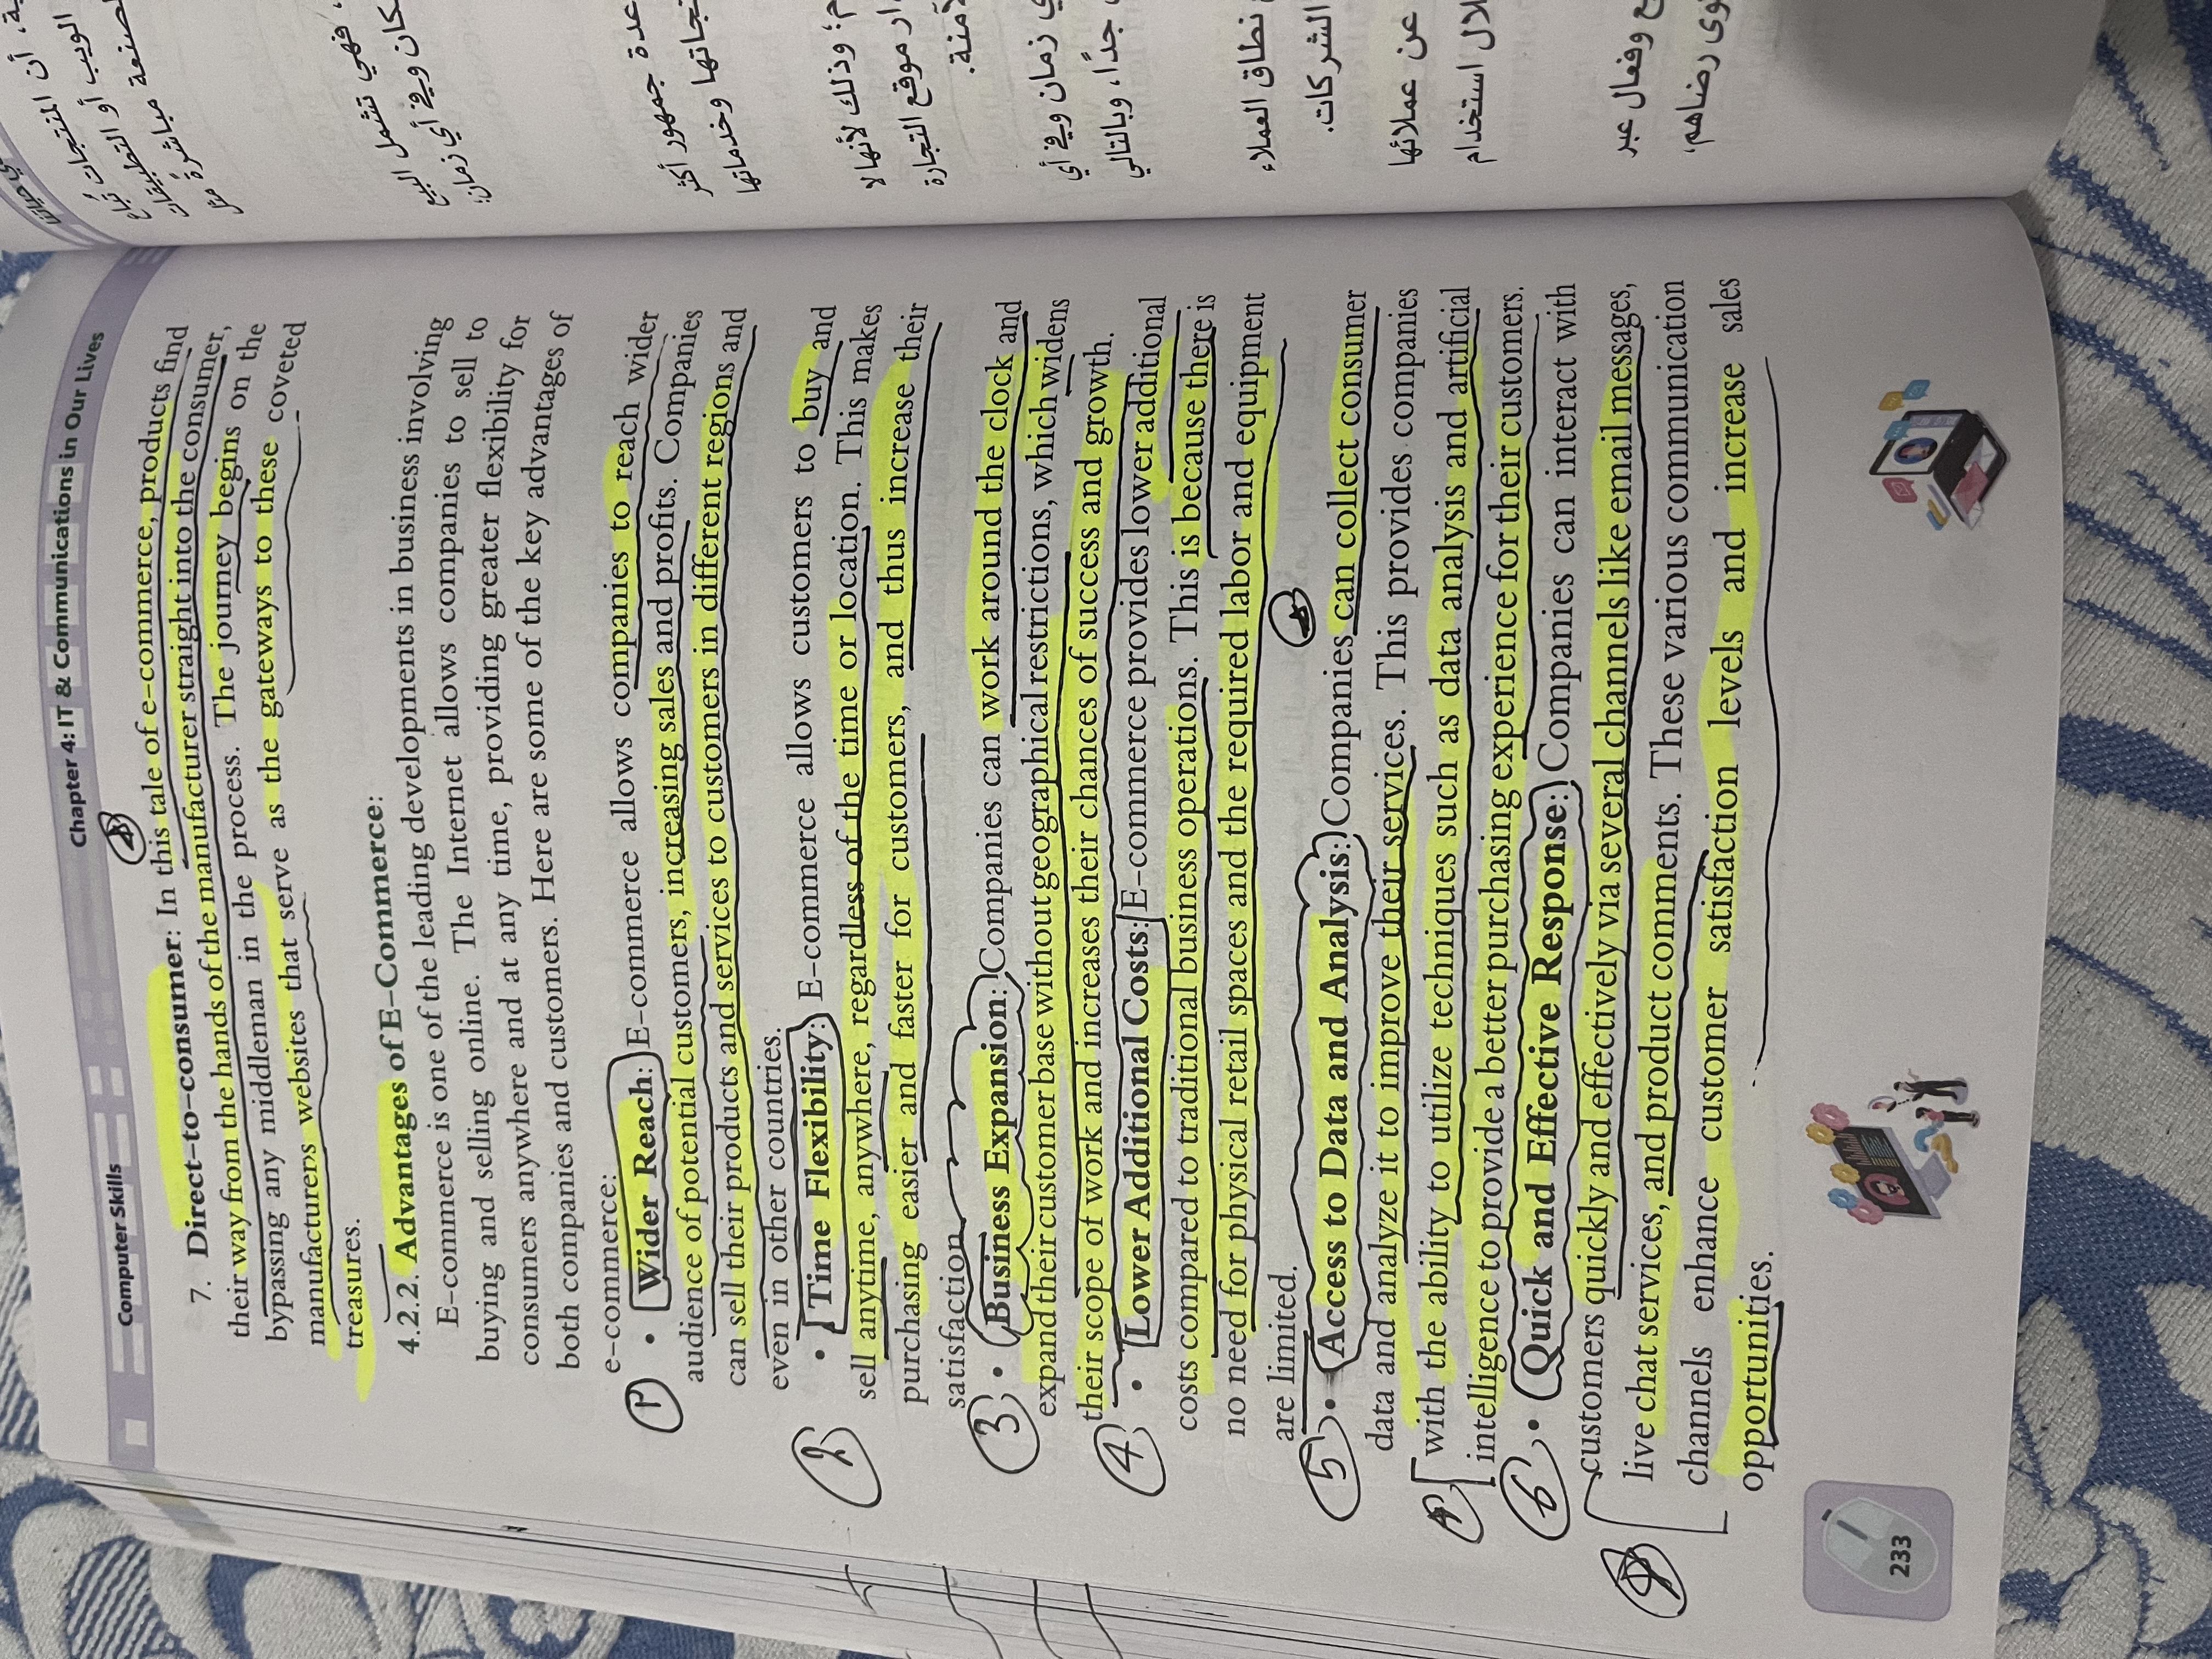 Computer Skills
Chapter 4: IT & Communications in Our Lives
7. Direct-to-consumer: In this tale of e-commerce, products find
their way from the hands of the manufacturer straight into the consumer,
bypassing any middleman in the process. The journey begins on the
manufacturers websites that serve as the gateways to these coveted
treasures.
4.2.2. Advantages of E-Commerce:
E-commerce is one of the leading developments in business involving
buying and selling online. The Internet allows companies to sell to
consumers anywhere and at any time, providing greater flexibility for
both companies and customers. Here are some of the key advantages of
e-commerce:
1 • Wider Reach: E-commerce allows companies to reach wider
audience of potential customers, increasing sales and profits. Companies
can sell their products and services to customers in different regions and
even in other countries.
2 • Time Flexibility: E-commerce allows customers to buy and
sell anytime, anywhere, regardless of the time or location. This makes
purchasing easier and faster for customers, and thus increase their
satisfaction
3 • Business Expansion: Companies can work around the clock and
expand their customer base without geographical restrictions, which widens
their scope of work and increases their chances of success and growth.
4 • Lower Additional Costs: E-commerce provides lower additional
costs compared to traditional business operations. This is because there is
no need for physical retail spaces and the required labor and equipment
are limited.
5 • Access to Data and Analysis: Companies can collect consumer
data and analyze it to improve their services. This provides companies
with the ability to utilize techniques such as data analysis and artificial
intelligence to provide a better purchasing experience for their customers.
6 • Quick and Effective Response: Companies can interact with
customers quickly and effectively via several channels like email messages,
live chat services, and product comments. These various communication
channels enhance customer satisfaction levels and increase sales
opportunities.
233
أن المنتجات تُباع
الويب أو التطبيقات
مباشرةً
، فهي تشمل البيع
كان وفي أي زمان:
عدة جمهور أكثر
وخدماتها
م؛ وذلك لأنها لا
موقع التجارة
زمان وفي أي
جدًا، وبالتالي
نطاق العملاء
الشركات.
عن عملائها
استخدام
وفعال عبر
رضاهم،